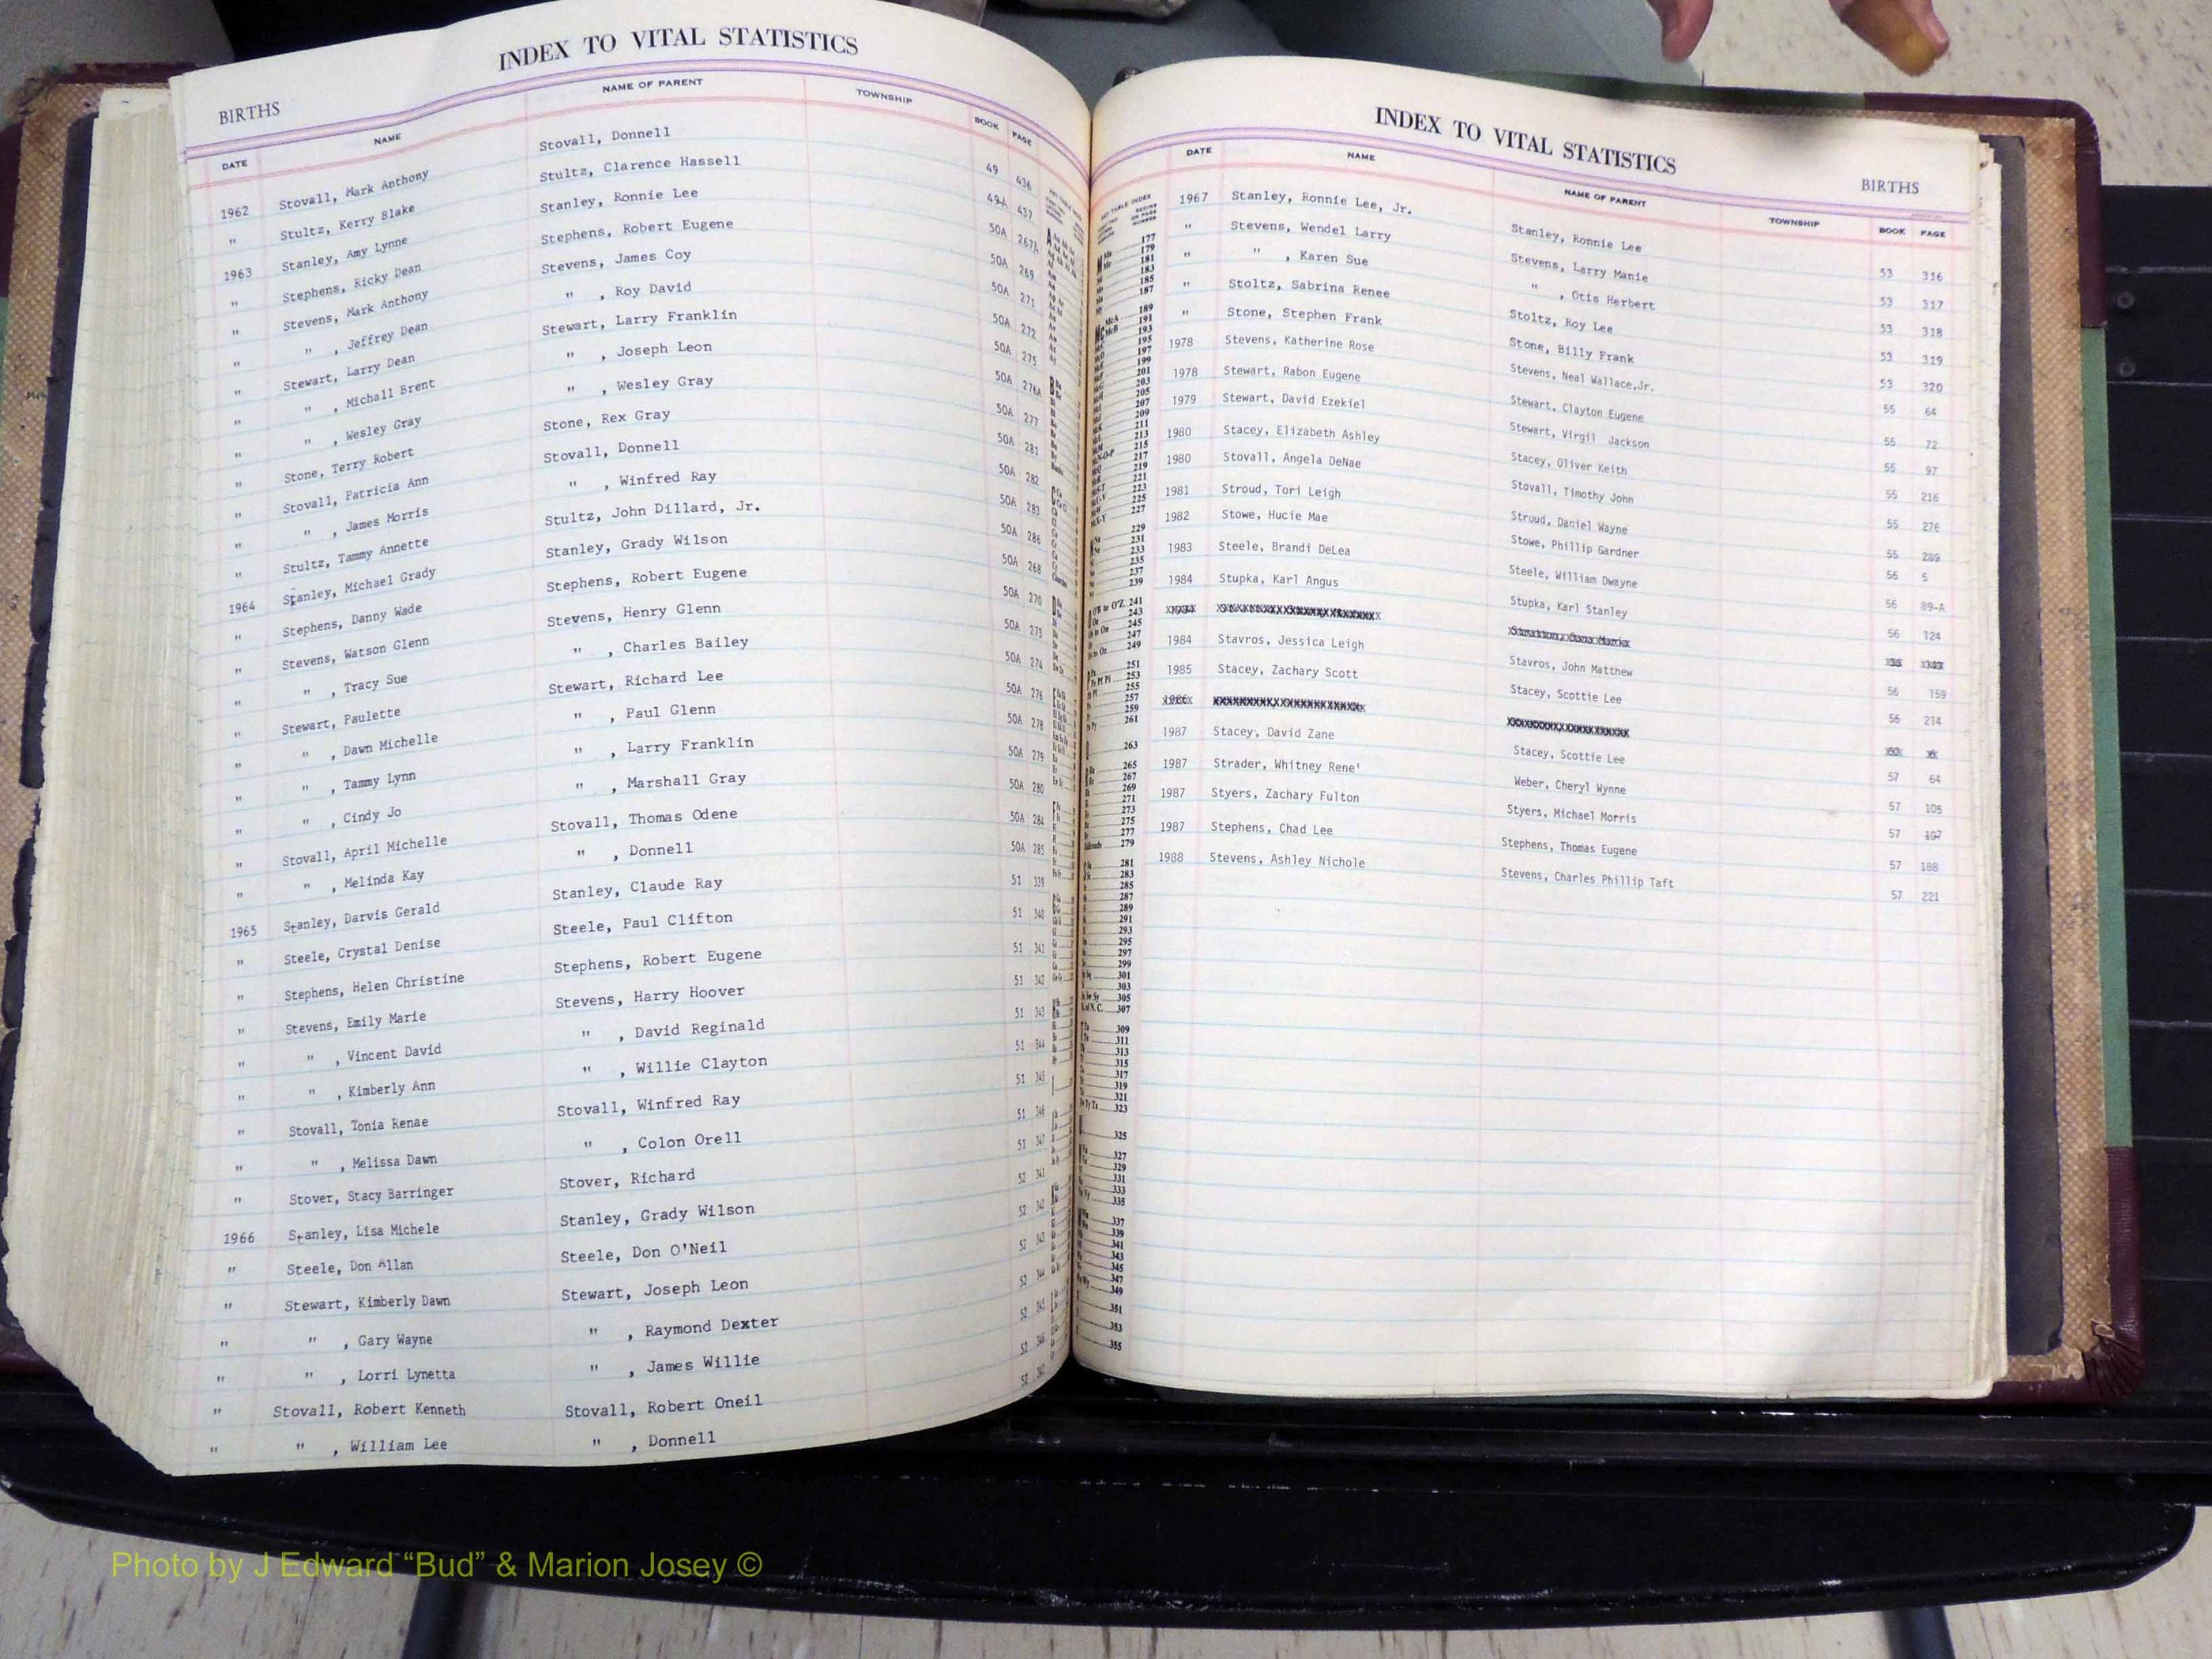 INDEX TO VITAL STATISTICS
BIRTHS
DATE NAME NAME OF PARENT TOWNSHIP BOOK PAGE
1962 Stovall, Mark Anthony Stovall, Donnell 49 436
" Stultz, Kerry Blake Stultz, Clarence Hassell 49-A 437
1963 Stanley, Amy Lynne Stanley, Ronnie Lee 50A 267A
" Stephens, Ricky Dean Stephens, Robert Eugene 50A 269
" Stevens, Mark Anthony Stevens, James Coy 50A 271
" " , Jeffrey Dean " , Roy David 50A 272
" Stewart, Larry Dean Stewart, Larry Franklin 50A 275
" " , Michall Brent " , Joseph Leon 50A 276A
" " , Wesley Gray " , Wesley Gray 50A 277
" Stone, Terry Robert Stone, Rex Gray 50A 281
" Stovall, Patricia Ann Stovall, Donnell 50A 282
" " , James Morris " , Winfred Ray 50A 283
" Stultz, Tammy Annette Stultz, John Dillard, Jr. 50A 286
1964 Stanley, Michael Grady Stanley, Grady Wilson 50A 268
" Stephens, Danny Wade Stephens, Robert Eugene 50A 270
" Stevens, Watson Glenn Stevens, Henry Glenn 50A 273
" " , Tracy Sue " , Charles Bailey 50A 274
" Stewart, Paulette Stewart, Richard Lee 50A 276
" " , Dawn Michelle " , Paul Glenn 50A 278
" " , Tammy Lynn " , Larry Franklin 50A 279
" " , Cindy Jo " , Marshall Gray 50A 280
" Stovall, April Michelle Stovall, Thomas Odene 50A 284
" " , Melinda Kay " , Donnell 50A 285
1965 Stanley, Darvis Gerald Stanley, Claude Ray 51 339
" Steele, Crystal Denise Steele, Paul Clifton 51 340
" Stephens, Helen Christine Stephens, Robert Eugene 51 341
" Stevens, Emily Marie Stevens, Harry Hoover 51 342
" " , Vincent David " , David Reginald 51 343
" " , Kimberly Ann " , Willie Clayton 51 344
" Stovall, Tonia Renae Stovall, Winfred Ray 51 345
" " , Melissa Dawn " , Colon Orell 51 346
" Stover, Stacy Barringer Stover, Richard 51 347
1966 Stanley, Lisa Michele Stanley, Grady Wilson 52 341
" Steele, Don Allan Steele, Don O'Neil 52 342
" Stewart, Kimberly Dawn Stewart, Joseph Leon 52 343
" " , Gary Wayne " , Raymond Dexter 52 344
" " , Lorri Lynetta " , James Willie 52 345
" Stovall, Robert Kenneth Stovall, Robert Oneil 52 346
" " , William Lee " , Donnell 52 347
INDEX TO VITAL STATISTICS
BIRTHS
DATE NAME NAME OF PARENT TOWNSHIP BOOK PAGE
1967 Stanley, Ronnie Lee, Jr. Stanley, Ronnie Lee 53 316
" Stevens, Wendel Larry Stevens, Larry Manie 53 317
" " , Karen Sue " , Otis Herbert 53 318
" Stoltz, Sabrina Renee Stoltz, Roy Lee 53 319
" Stone, Stephen Frank Stone, Billy Frank 53 320
1978 Stevens, Katherine Rose Stevens, Neal Wallace,Jr. 55 64
1978 Stewart, Rabon Eugene Stewart, Clayton Eugene 55 72
1979 Stewart, David Ezekiel Stewart, Virgil Jackson 55 97
1980 Stacey, Elizabeth Ashley Stacey, Oliver Keith 55 216
1980 Stovall, Angela DeNae Stovall, Timothy John 55 276
1981 Stroud, Tori Leigh Stroud, Daniel Wayne 55 289
1982 Stowe, Hucie Mae Stowe, Phillip Gardner 56 5
1983 Steele, Brandi DeLea Steele, William Dwayne 56 89-A
1984 Stupka, Karl Angus Stupka, Karl Stanley 56 124
1984 Stavros, Jessica Leigh Stavros, John Matthew 56 159
1985 Stacey, Zachary Scott Stacey, Scottie Lee 56 214
1987 Stacey, David Zane Stacey, Scottie Lee 57 64
1987 Strader, Whitney Rene' Weber, Cheryl Wynne 57 105
1987 Styers, Zachary Fulton Styers, Michael Morris 57 107
1987 Stephens, Chad Lee Stephens, Thomas Eugene 57 188
1988 Stevens, Ashley Nichole Stevens, Charles Phillip Taft 57 221
Photo by J Edward “Bud” & Marion Josey ©